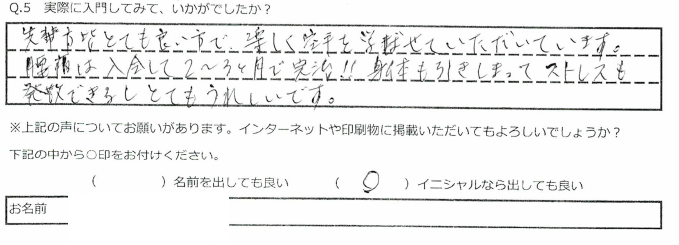 Q.5 実際に入門してみて、いかがでしたか？
先輩方皆とても良い方で、楽しく空手を学ばせていただいています。
腰痛は入会して2〜3ヶ月で完治!! 身体も引きしまってストレスも
発散できるしとてもうれしいです。
※上記の声についてお願いがあります。インターネットや印刷物に掲載いただいてもよろしいでしょうか？
下記の中から○印をお付けください。
（　　　）名前を出しても良い　（　○　）イニシャルなら出しても良い
お名前